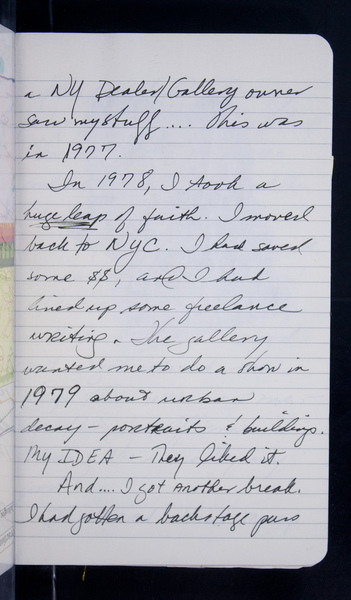 a NY Dealer/Gallery owner
saw my stuff.... This was
in 1977.
In 1978, I took a
huge leap of faith. I moved
back to NYC. I had saved
some $$, and I had
lined up some freelance
writing. The gallery
wanted me to do a show in
1979 about urban
decay - portraits & buildings.
My IDEA - They liked it.
And.... I got another break.
I had gotten a backstage pass